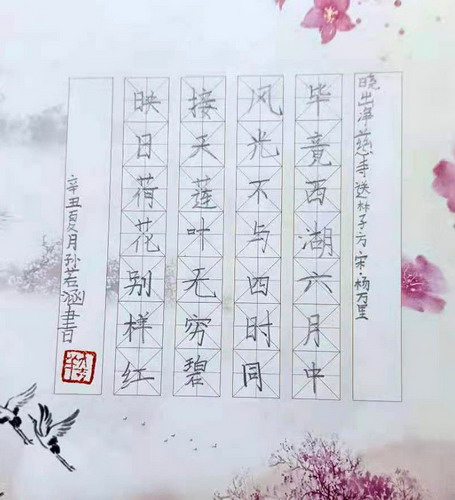 晓出净慈寺送林子方 宋·杨万里
毕竟西湖六月中
风光不与四时同
接天莲叶无穷碧
映日荷花别样红
辛丑夏月孙若涵书